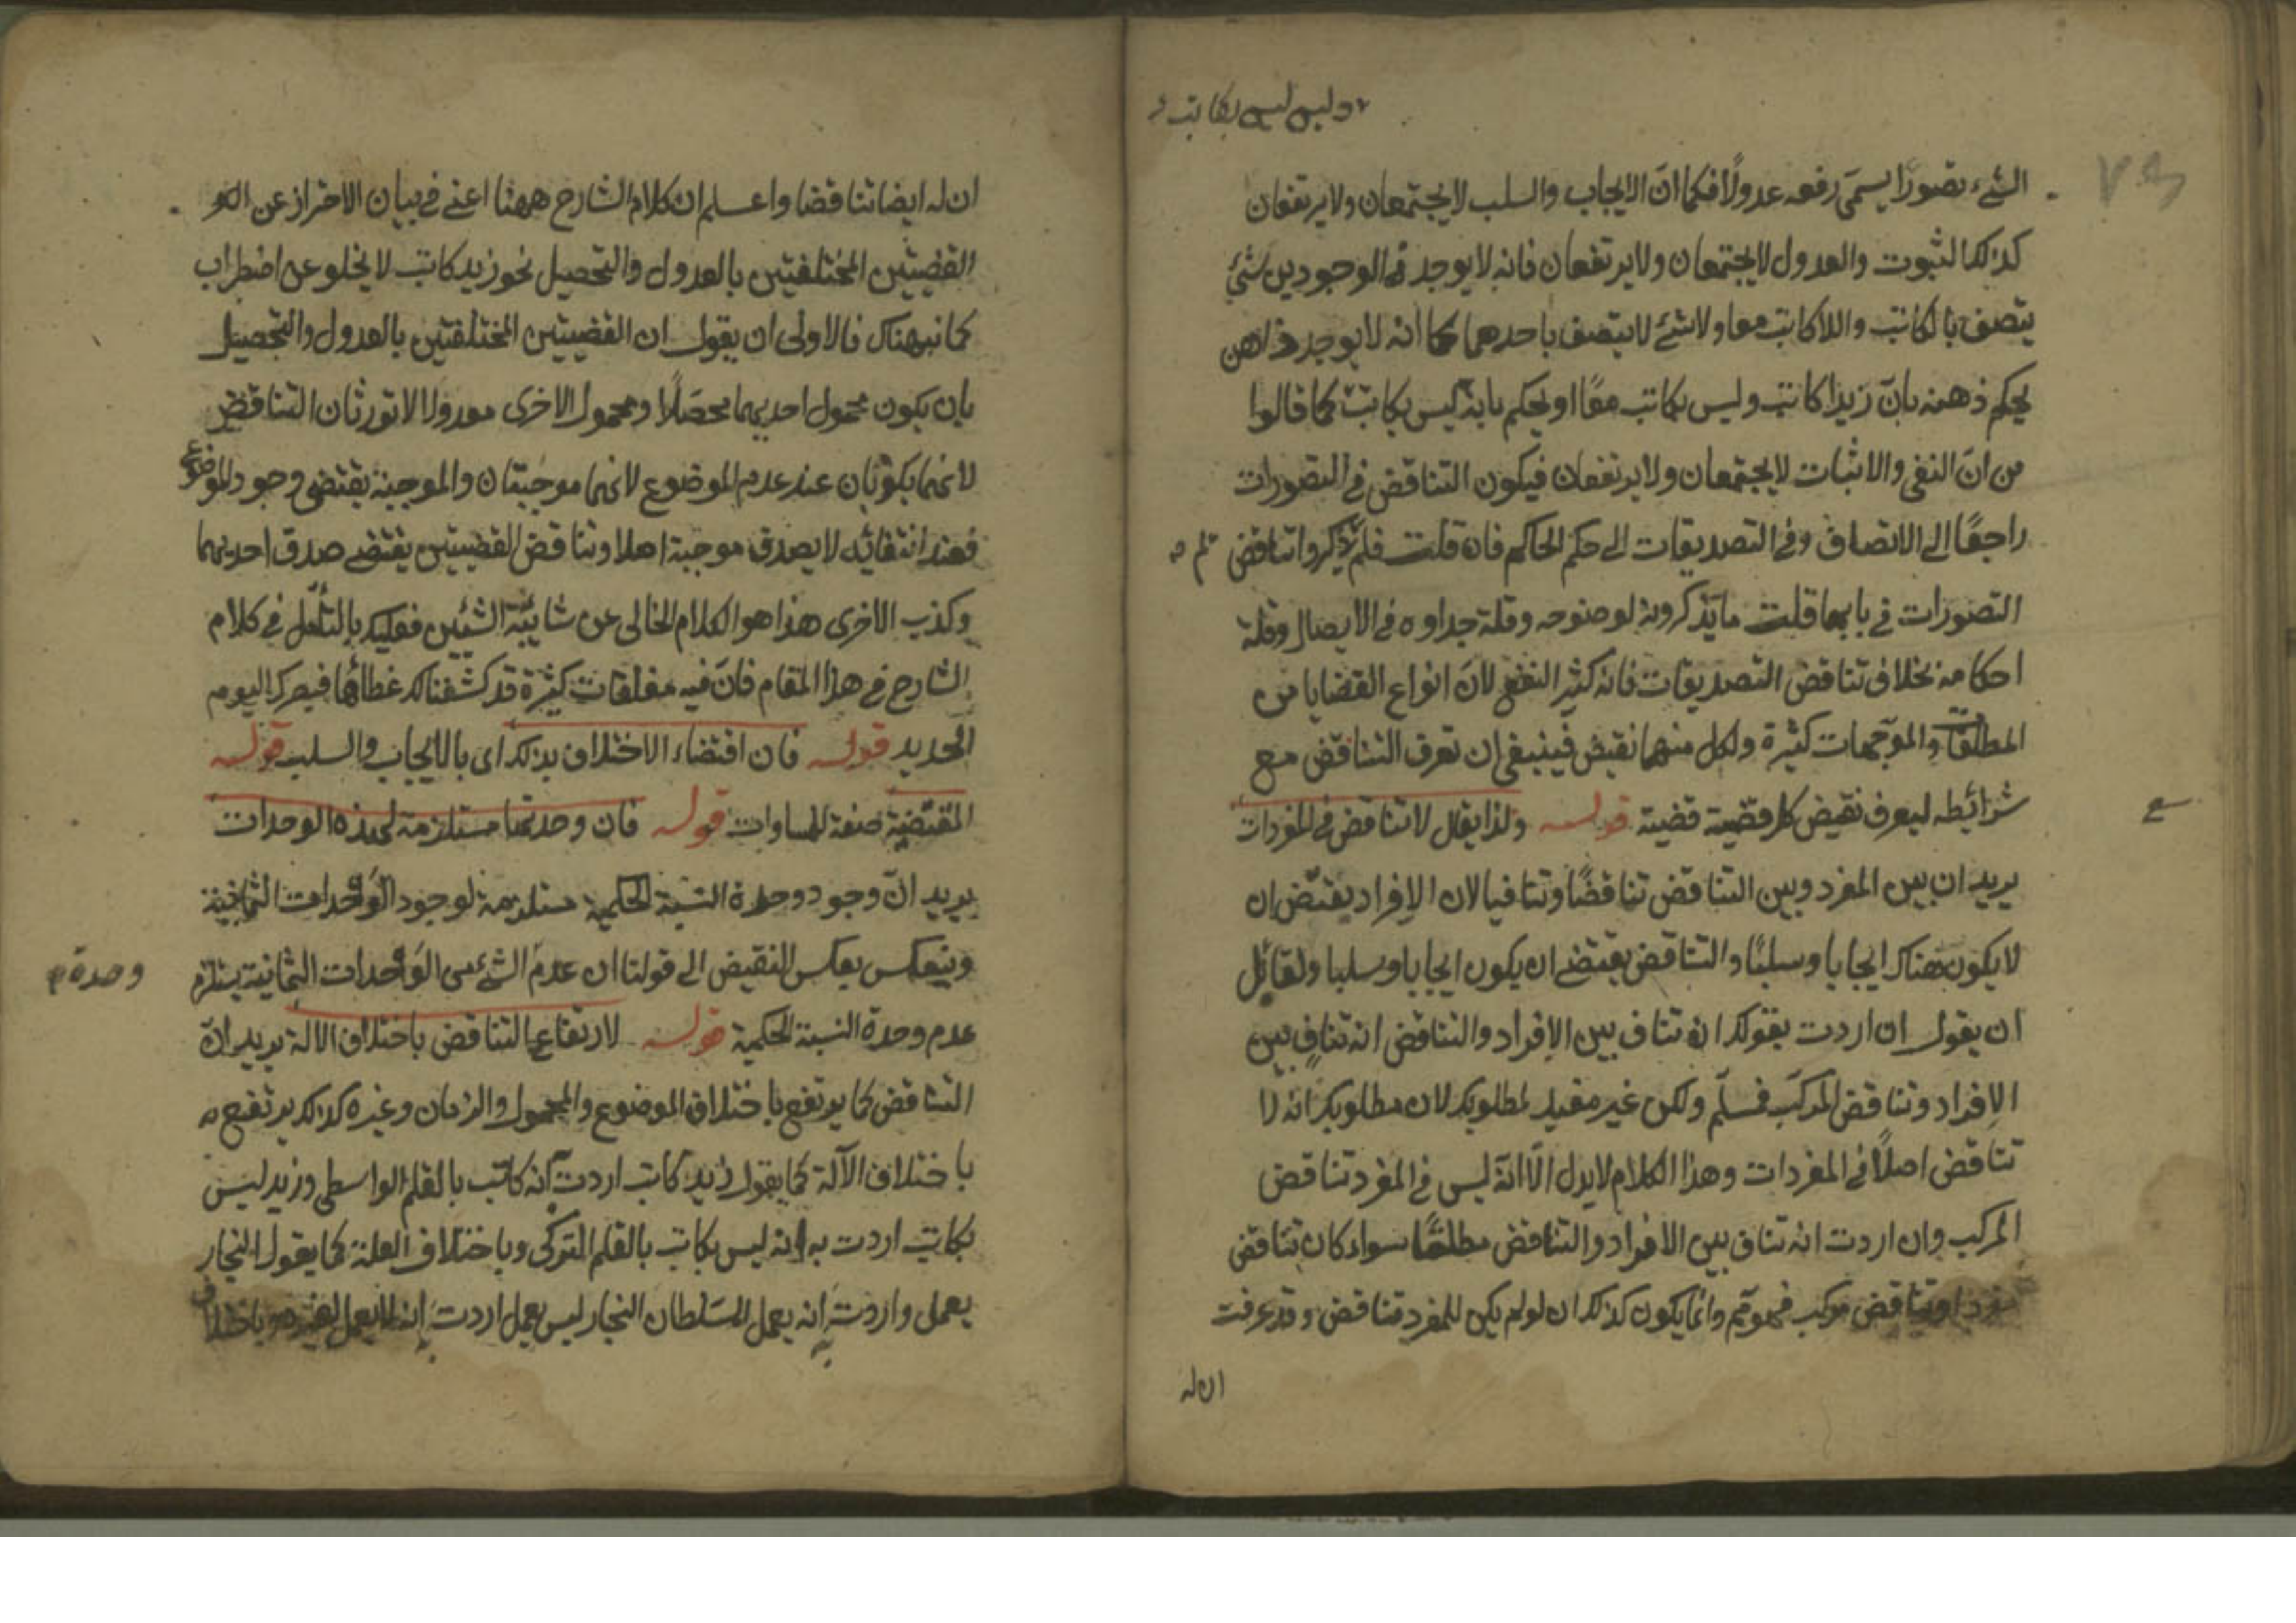 وليس ليس بكاتب
الشئ تصورا يسمى رفعه عدولا فكما ان الايجاب والسلب لا يجتمعان ولا يرتفعان
كذلك الثبوت والعدول لا يجتمعان ولا يرتفعان فانه لا يوجد في الوجودين شئ
يتصف بالكاتب واللاكاتب معا ولا شئ لا يتصف باحدهما كما انه لا يوجد ذاهن
يحكم ذهنه بان زيدا كاتب وليس بكاتب معا او يحكم بانه ليس بكاتب كما قالوا
من ان النفي والاثبات لا يجتمعان ولا يرتفعان فيكون التناقض في التصورات
راجعا الى الاتصاف وفي التصديقات الى حكم الحاكم فان قلت فلم لم يذكروا تناقض
التصورات في بابها قلت ما يذكرونه لوضوحه وقلة جداوه في الايصال وقلة
احكامه بخلاف تناقض التصديقات فانه كثير النفع لان انواع القضايا من
المطلقات والموجهات كثيرة ولكل منهما نقيض فينبغي ان تعرف التناقض مع
شرائطه ليعرف نقيض كل قضية قضية قوله ولذا يقال لا تناقض في المفردات
يريد ان بين المفرد وبين التناقض تناقضا وتنافيا لان الافراد يقتضى ان
لا يكون هناك ايجابا وسلبا والتناقض يقتضى ان يكون ايجابا وسلبا ولقائل
ان يقول ان اردت بقولك انه تناف بين الافراد والتناقض انه تناف بين
الافراد وتناقض المركب فسلم ولكن غير مفيد لمطلوبك لان مطلوبك انه لا
تناقض اصلا في المفردات وهذا الكلام لا يدل الا انه ليس في المفرد تناقض
المركب وان اردت انه تناف بين الافراد والتناقض مطلقا سواء كان تناقض
مفرد او تناقض مركب فهو تم وانما يكون كذلك ان لو لم يكن للمفرد تناقض وقد عرفت
ان له
ان له ايضا تناقضا واعلم ان كلام الشارح ههنا اعنى في بيان الاحتراز عن
القضيتين المختلفتين بالعدول والتحصيل نحو زيد كاتب لا يخلو عن اضطراب
كما نبهناك فالاولى ان يقول ان القضيتين المختلفتين بالعدول والتحصيل
بان يكون محمول احديهما محصلا ومحمول الاخرى معدولا لا تورثان التناقض
لانهما يكذبان عند عدم الموضوع لانهما موجبتان والموجبة يقتضى وجود الموضوع
فعند انتفائه لا يصدق موجبة اصلا وتناقض القضيتين يقتضى صدق احديهما
وكذب الاخرى هذا هو الكلام الخالى عن شائبة الشين فعليك بالتأمل في كلام
الشارح في هذا المقام فان فيه مغلقات كثيرة قد كشفنا لك غطائها فبصرك اليوم
الحديد قوله فان اقتضاء الاختلاف بذلك اى بالايجاب والسلب قوله
المقتضية صفة للمساوات قوله فان وحدتها مستلزمة لهذه الوحدات
يريد ان وجود وحدة النسبة الحكمية مستلزمة لوجود الوحدات الثمانية
وينعكس بعكس النقيض الى قولنا ان عدم الشئ من الوحدات الثمانية يستلزم
وحدة
عدم وحدة النسبة الحكمية قوله لارتفاع التناقض باختلاف الالة يريد ان
التناقض كما يرتفع باختلاف الموضوع والمحمول والزمان وغيره كذلك يرتفع
باختلاف الآلة كما يقول زيد كاتب اردت انه كاتب بالقلم الواسطى وزيد ليس
بكاتب اردت به انه ليس بكاتب بالقلم التركى وباختلاف العلة كما يقول النجار
يعمل واردت به انه يعمل للسلطان النجار ليس يعمل اردت به انه لا يعمل لغيره وباختلاف